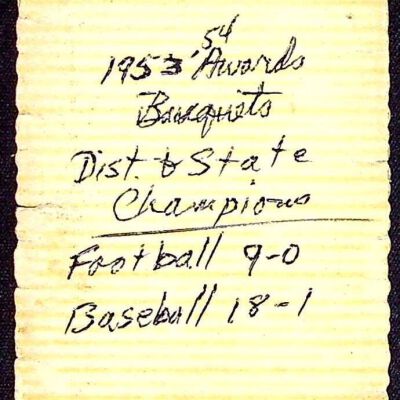 54
1953 Awards
Banquets
Dist. & State
Champions
Football 9-0
Baseball 18-1